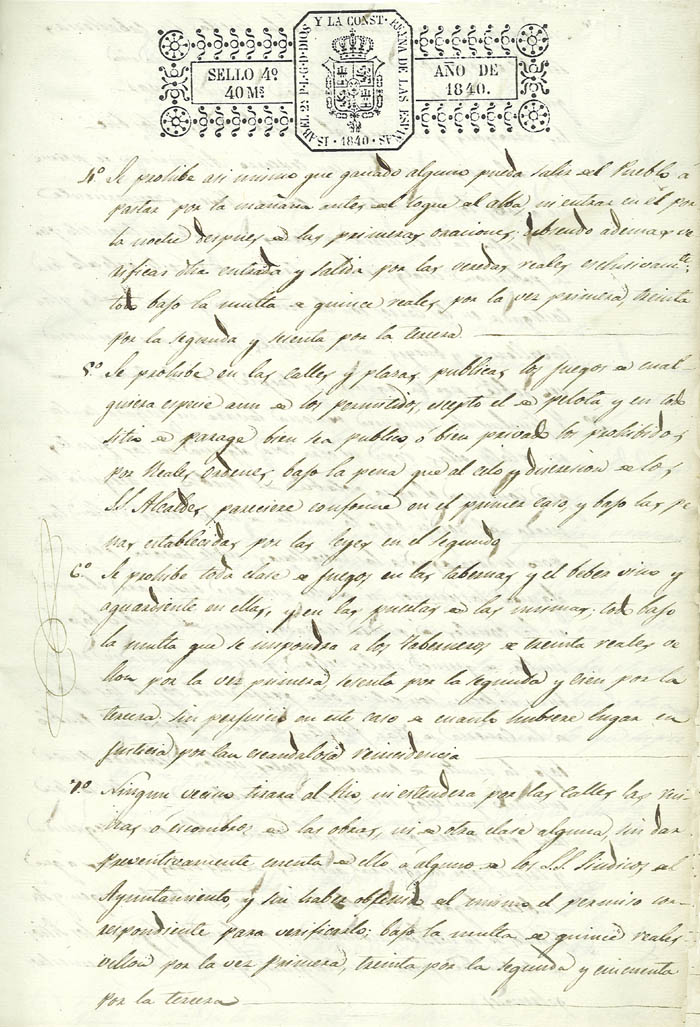 ISABEL 2ª P.L.G.D.DIOS Y LA CONST. REYNA DE LAS ESPAÑAS
SELLO 4º
40 Mˢ
AÑO DE
1840.
· 1840 ·
4º Se prohibe asi mismo que ganado alguno pueda salir del Pueblo a
pastar por la mañana antes del toque del alba, ni entrar en él por
la noche despues de las primeras oraciones; debiendo ademas ve-
rificar dha entrada y salida por las veredas reales esclusivamᵗᵉ;
todo bajo la multa de quince reales por la vez primera, treinta
por la segunda y sesenta por la tercera.
5º Se prohibe en las calles y plazas publicas los juegos de cual-
quiera especie aun de los permitidos, escepto el de pelota y en todo
sitio de parage bien sea publico o bien privado los prohibidos
por Reales Ordenes, bajo la pena que al celo y discresion de los
S.S. Alcaldes pareciere conforme en el primer caso, y bajo las pe-
nas establecidas por las leyes en el segundo
6º Se prohibe toda clase de juegos en las tabernas y el beber vino y
aguardiente en ellas, y en las puertas de las mismas; todo bajo
la multa que se impondra a los Taberneros de treinta reales ve-
llon por la vez primera sesenta por la segunda y cien por la
tercera: sin perjuicio en este caso de cuanto hubiere lugar en
justicia por tan escandalosa reincidencia
7º Ningun vecino tirará al Rio, ni estenderá por las calles las rui-
nas o escombros de las obras, ni de otra clase alguna, sin dar
preventivamente cuenta de ello a alguno de los S.S. Sindicos del
Ayuntamiento y sin haber obtenido del mismo el permiso co-
rrespondiente para verificarlo; bajo la multa de quince reales
vellon por la vez primera, treinta por la segunda y cincuenta
por la tercera